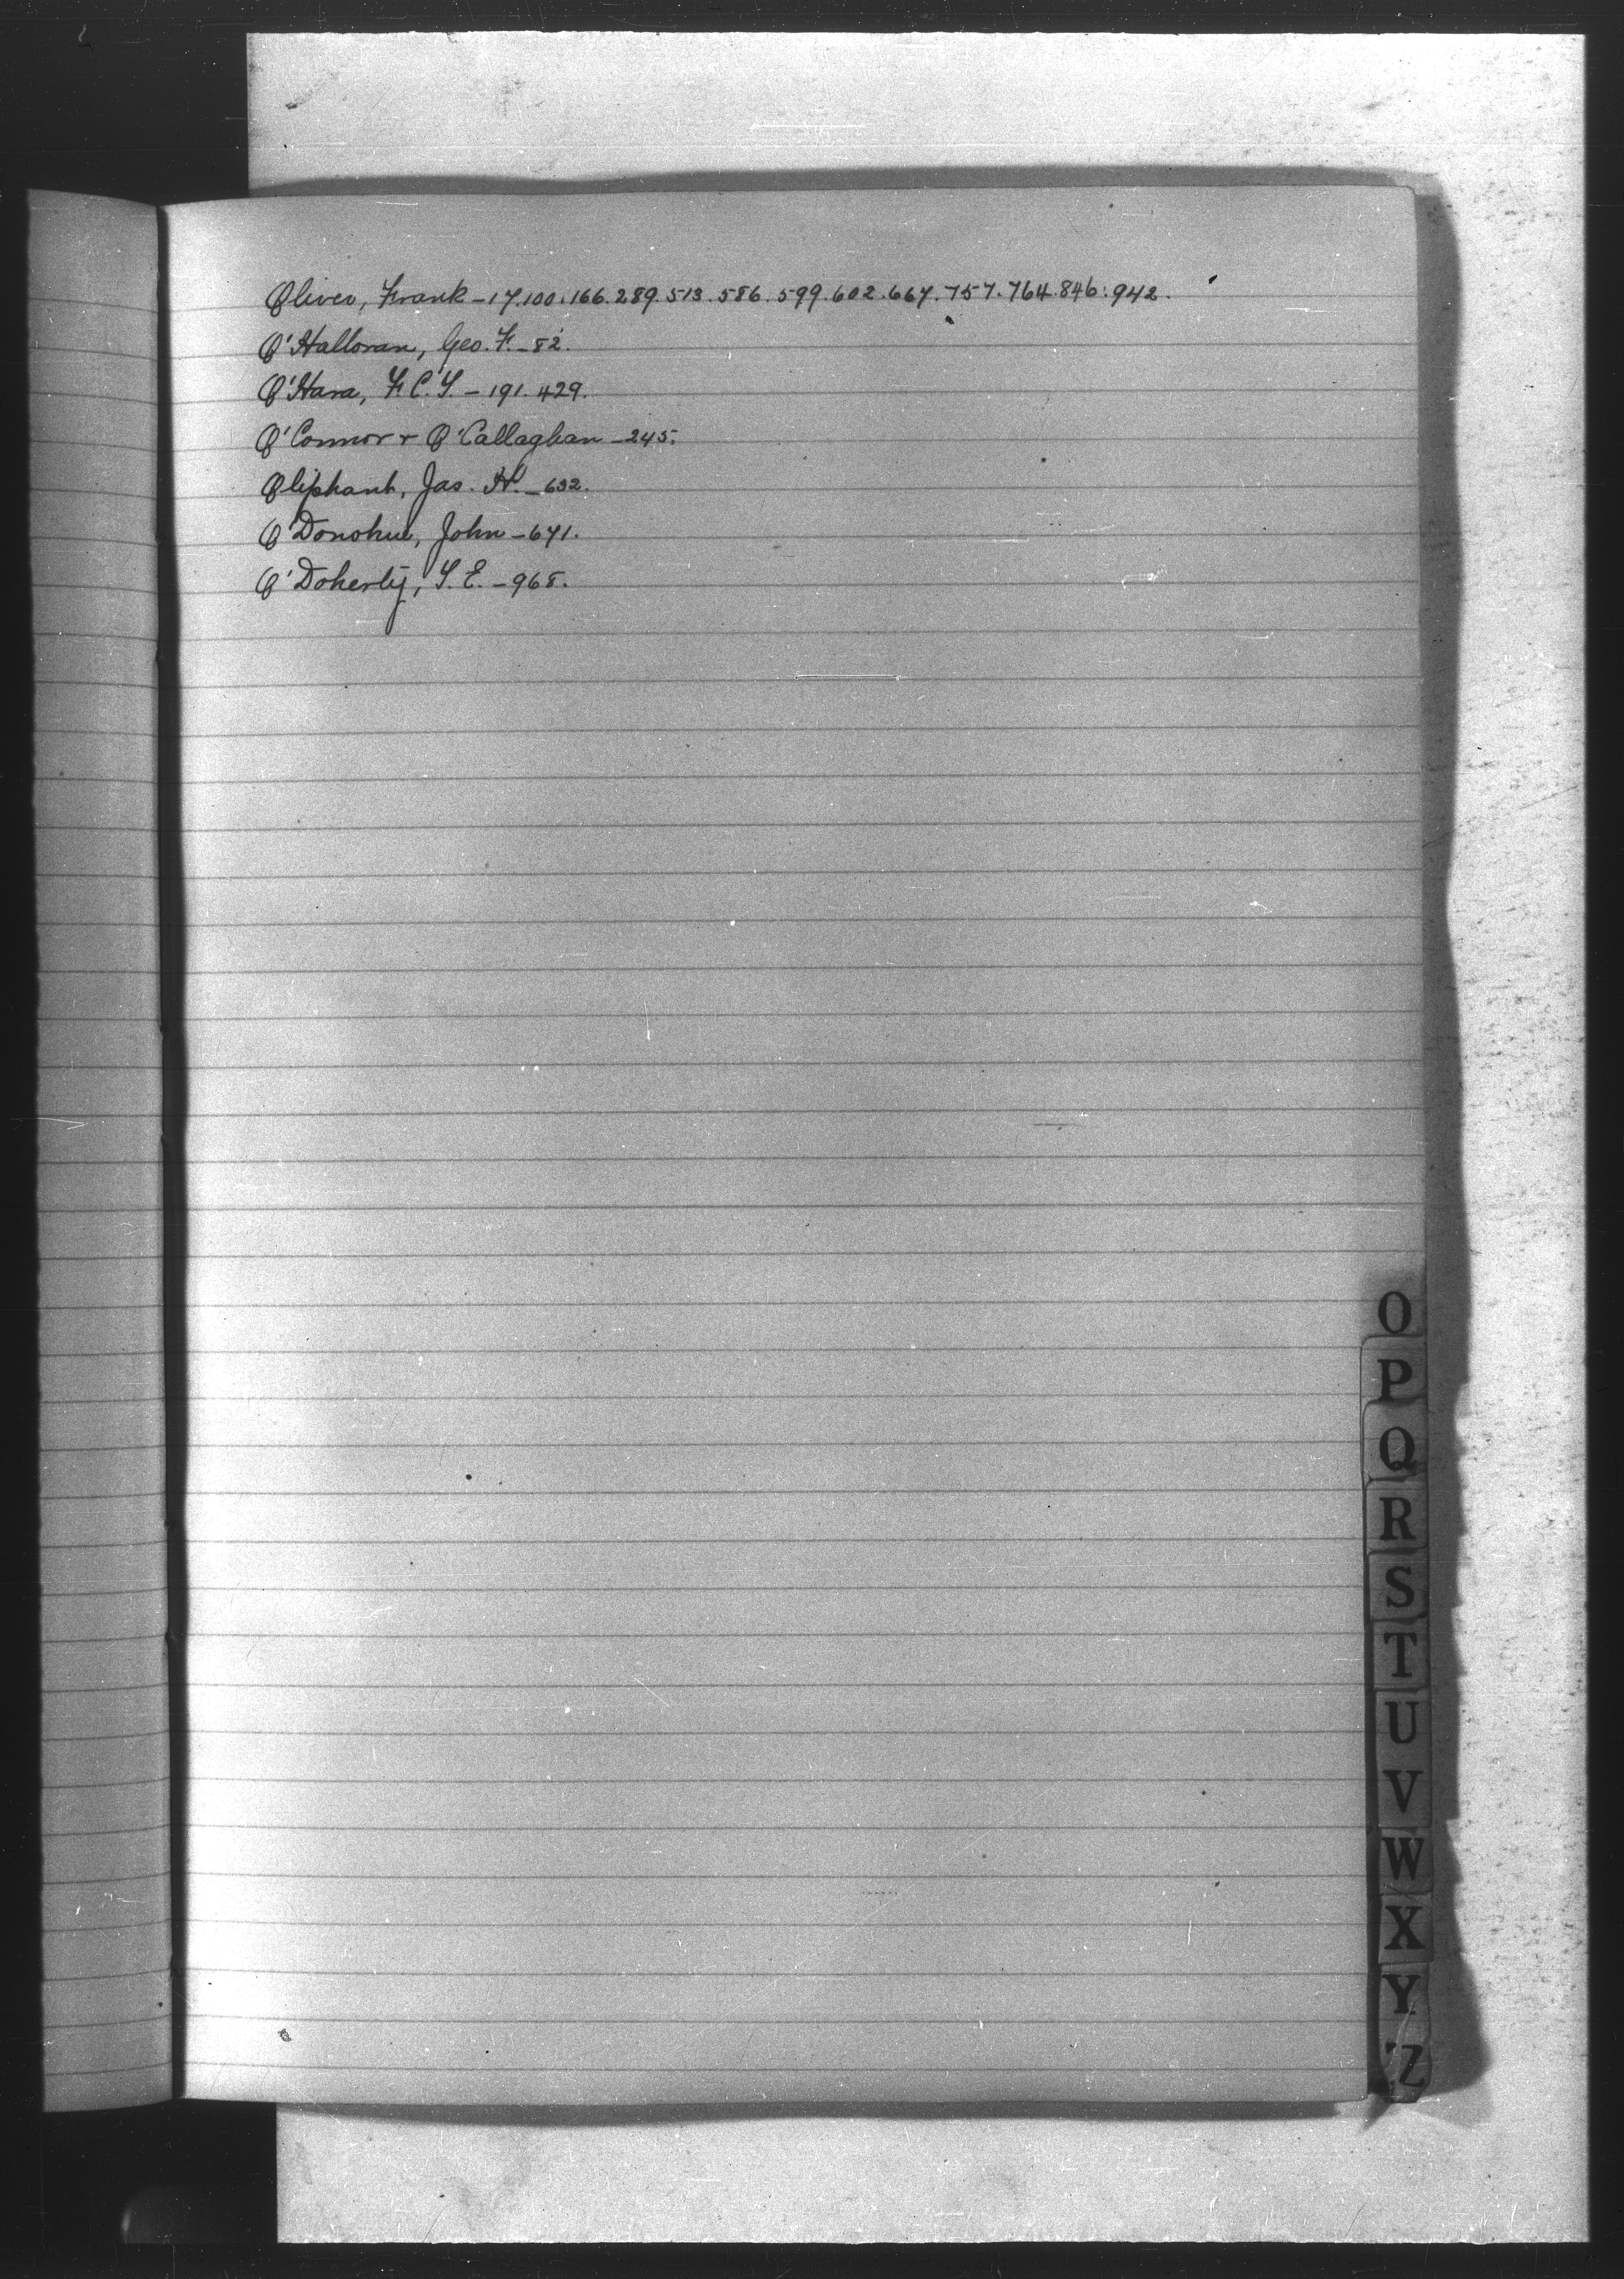 Oliver, Frank - 17.100.166.289.513.586.599.602.667.757.764.846.942.
O'Halloran, Geo. F. - 82.
O'Hara, F. C. T. - 191.429.
O'Connor & O'Callaghan - 245.
Oliphant, Jas. H. - 632.
O'Donohue, John - 671.
O'Doherty, T. E. - 968.
O
P
Q
R
S
T
U
V
W
X
Y
Z